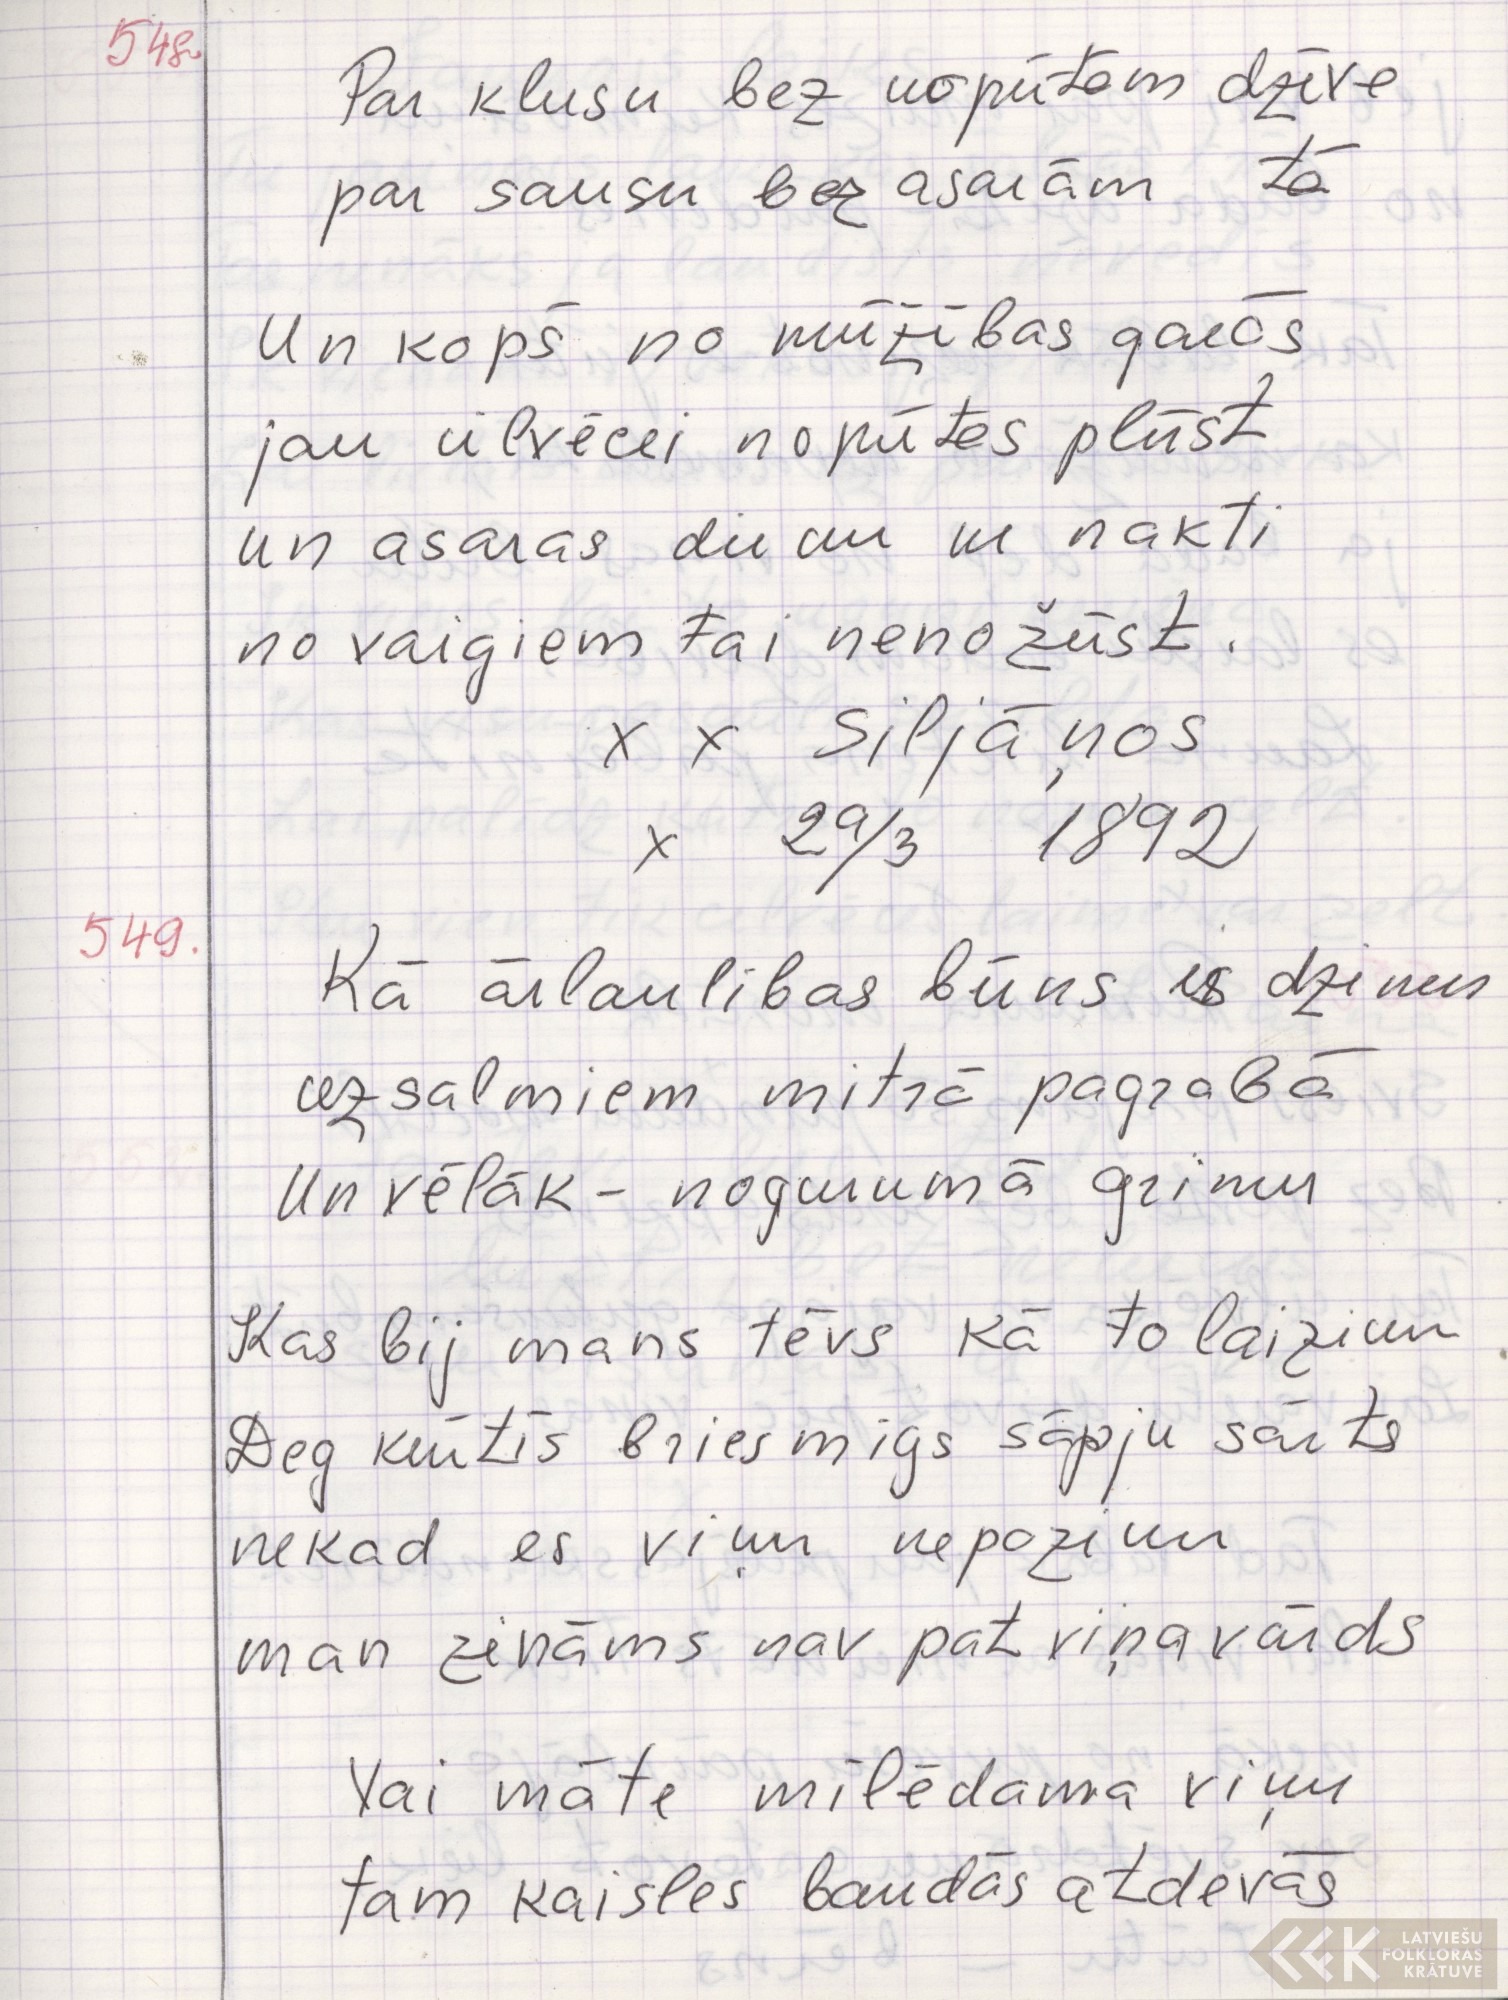 548.
Par klusu bez nopūtām dzīve
par sausu bez asarām tā
Un kopš no mūžības garās
jau cilvēcei nopūtas plūst
un asaras dienu un nakti
no vaigiem tai nenožūst.
x x Siljāņos
x 29/3 1892
549.
Kā ārlaulības būns es dzimu
uz salmiem mitrā pagrabā
Un vēlāk - nogurumā grimu
Kas bij mans tēvs kā to lai zinu
Deg krūtīs briesmīgs sāpju sārts
nekad es viņu nepazinu
man zināms nav pat viņa vārds
Vai māte mīlēdama viņu
tam kaisles baudās atdevās
LATVIEŠU
FOLKLORAS
KRĀTUVE